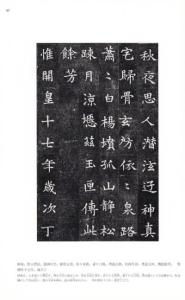 秋夜思人潛泫迊神真
宅歸骨玄房依〻泉路
蕭〻白楊墳孤山靜松
踈月涼瘞茲玉匣傳此
餘芳
惟開皇十七年歲次丁